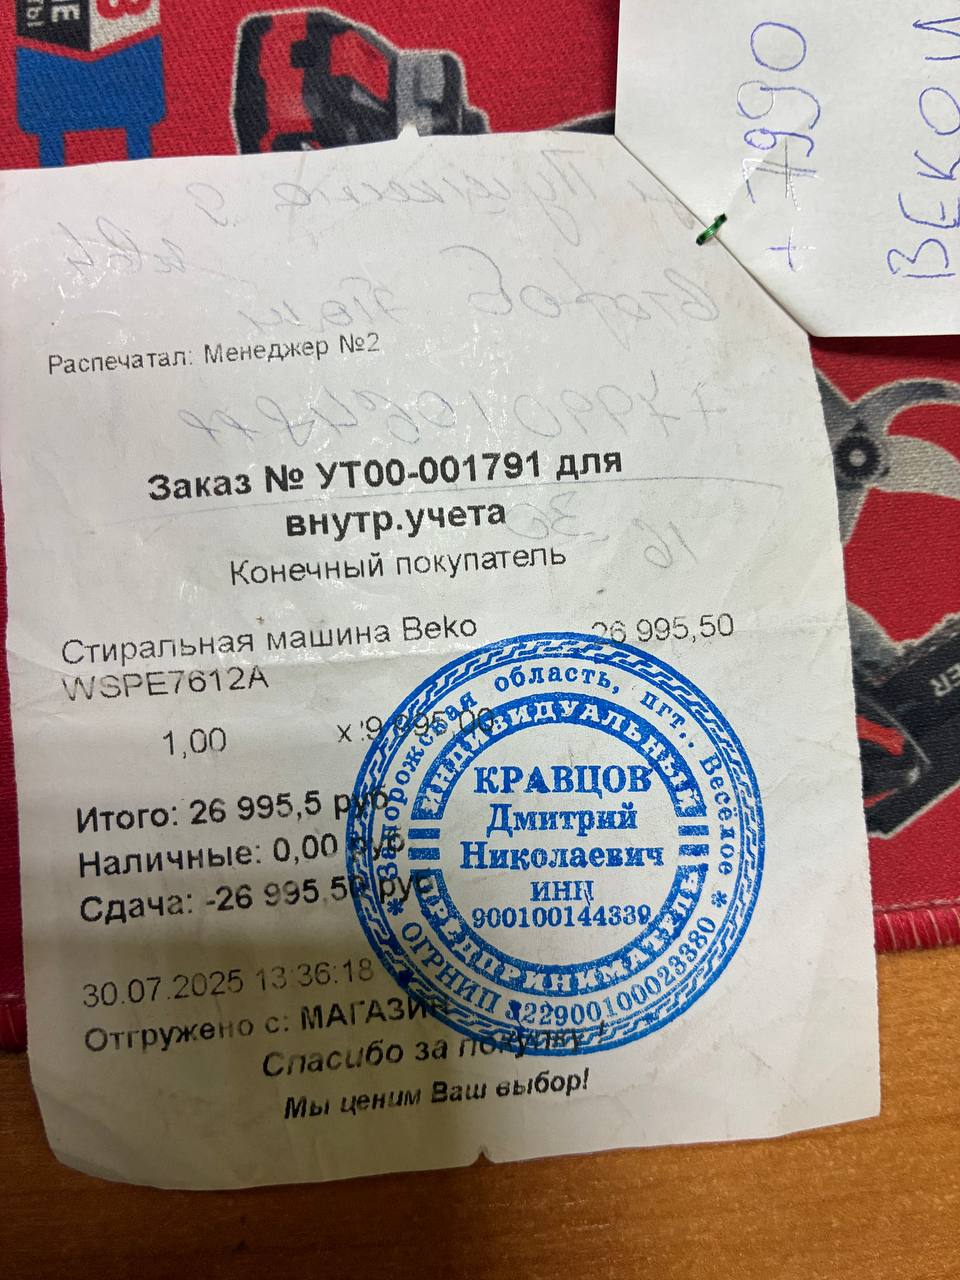 + 7990
ВЕКО
Распечатал: Менеджер №2
Заказ № УТ00-001791 для
внутр.учета
Конечный покупатель
Стиральная машина Beko 26 995,50
WSPE7612A
1,00 х 995,00
Итого: 26 995,5 руб
Наличные: 0,00 руб
Сдача: -26 995,50 руб
30.07.2025 13:36:18
Отгружено с: МАГАЗИН
Спасибо за покупку !
Мы ценим Ваш выбор!
Запорожская область, пгт.. Весёлое
ИНДИВИДУАЛЬНЫЙ
ПРЕДПРИНИМАТЕЛЬ
КРАВЦОВ
Дмитрий
Николаевич
ИНН
900100144339
* ОГРНИП 322900100023380 *